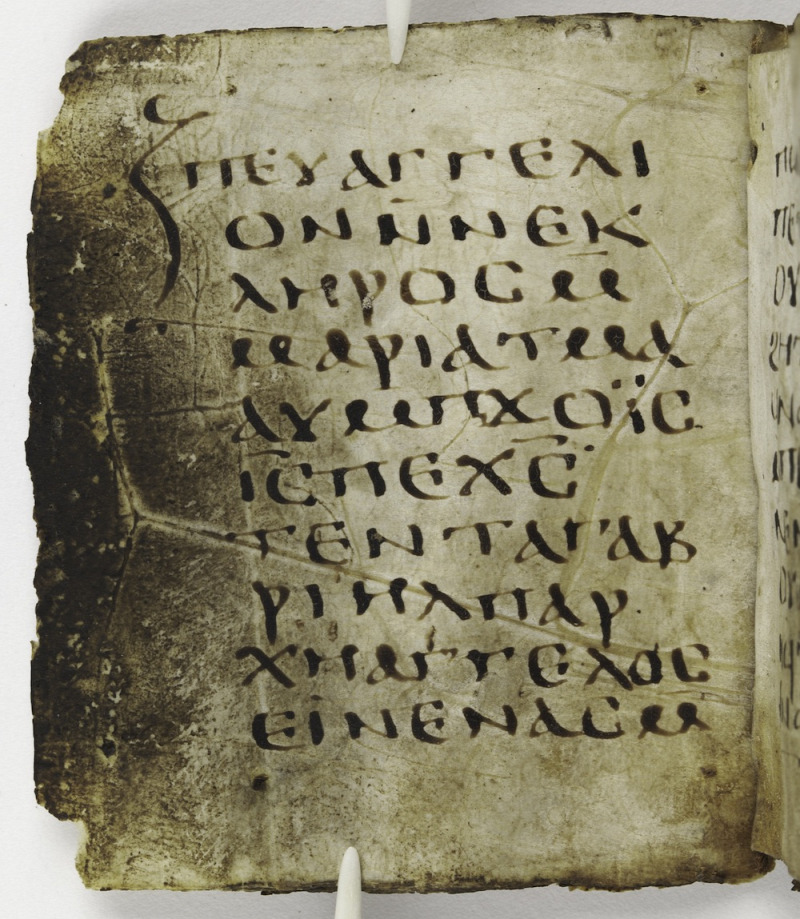 ⲡⲉⲩⲁⲅⲅⲉⲗⲓ
ⲟⲛⲛ̄ⲛⲉⲕ
ⲗⲏⲣⲟⲥⲙ̄
ⲙⲁⲣⲓⲁⲧⲙⲁ
ⲁⲩⲙⲡϫⲟⲉⲓⲥ
ⲓ̄ⲥ̄ⲡⲉⲭ̄ⲥ̄
ⲧⲉⲛⲧⲁⲅⲁⲃ
ⲣⲓⲏⲗⲡⲁⲣ
ⲭⲏⲁⲅⲅⲉⲗⲟⲥ
ⲉⲓⲛⲉⲛⲁⲥⲙ